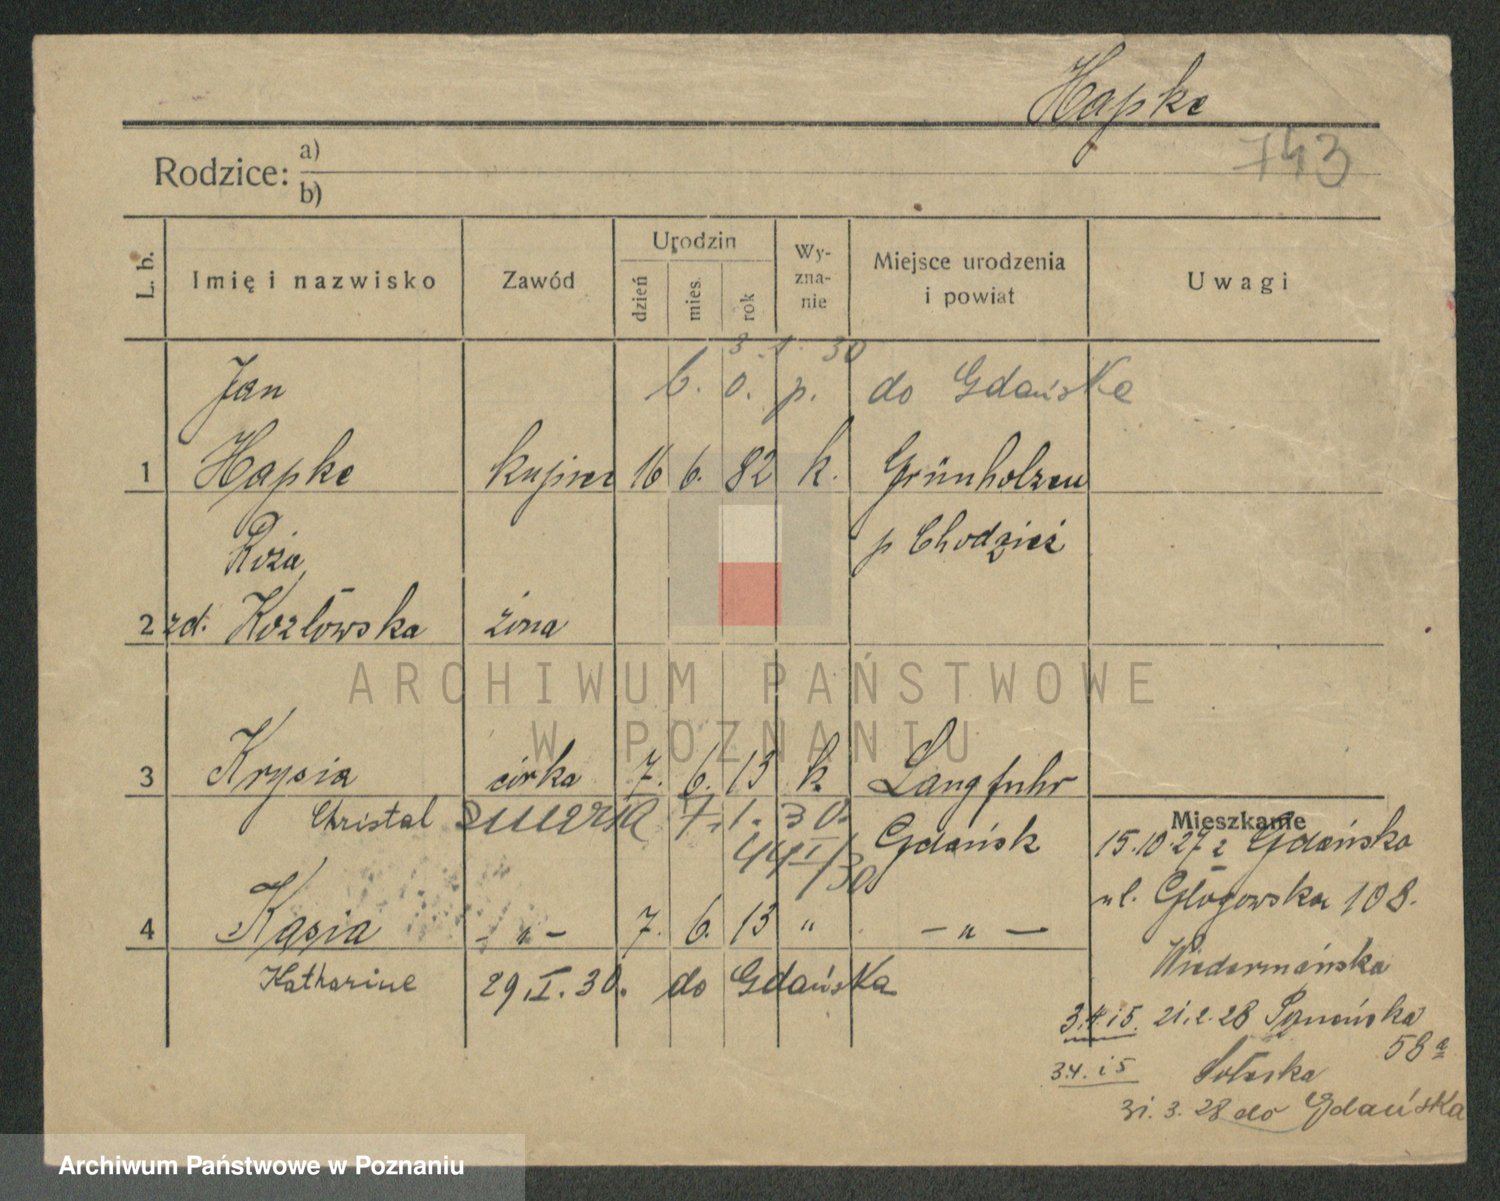 Hapke
743
Rodzice: a)
b)
L. b.
Imię i nazwisko
Zawód
Urodzin
dzień
mies.
rok
Wy-
zna-
nie
Miejsce urodzenia
i powiat
Uwagi
3. 1. 30
Jan
b. o. p. do Gdańska
1 Hapke kupiec 16 6. 82 k. Grünholzen
p Chodzież
Róża
2 zd. Kozłowska żona
3 Krysia córka 7. 6. 13 k. Langfuhr
Christal zmarła 7. 1. 30.
Gdańsk
4 Kasia - " - 7. 6. 13 " - " -
Katharine 29. I. 30. do Gdańska
Mieszkanie
15.10.27 z Gdańska
ul. Głogowska 108.
3.4. i 5. 21.2.28
58a
3.4. i 5 Sołaska
31. 3. 28 do Gdańska
ARCHIWUM PAŃSTWOWE
W POZNANIU
Archiwum Państwowe w Poznaniu